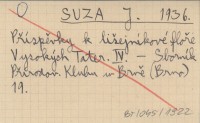 O SUZA J. 1936.
Příspěvky k lišejníkové flóře
Vysokých Tater. IV. – Sborník
Přírodov. Klubu v Brně (Brno)
19.